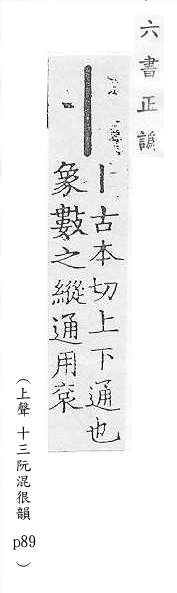 六書正譌
丨
丨古本切上下通也
象數之縱通用衮
（上聲 十三阮混很韻 p89 ）